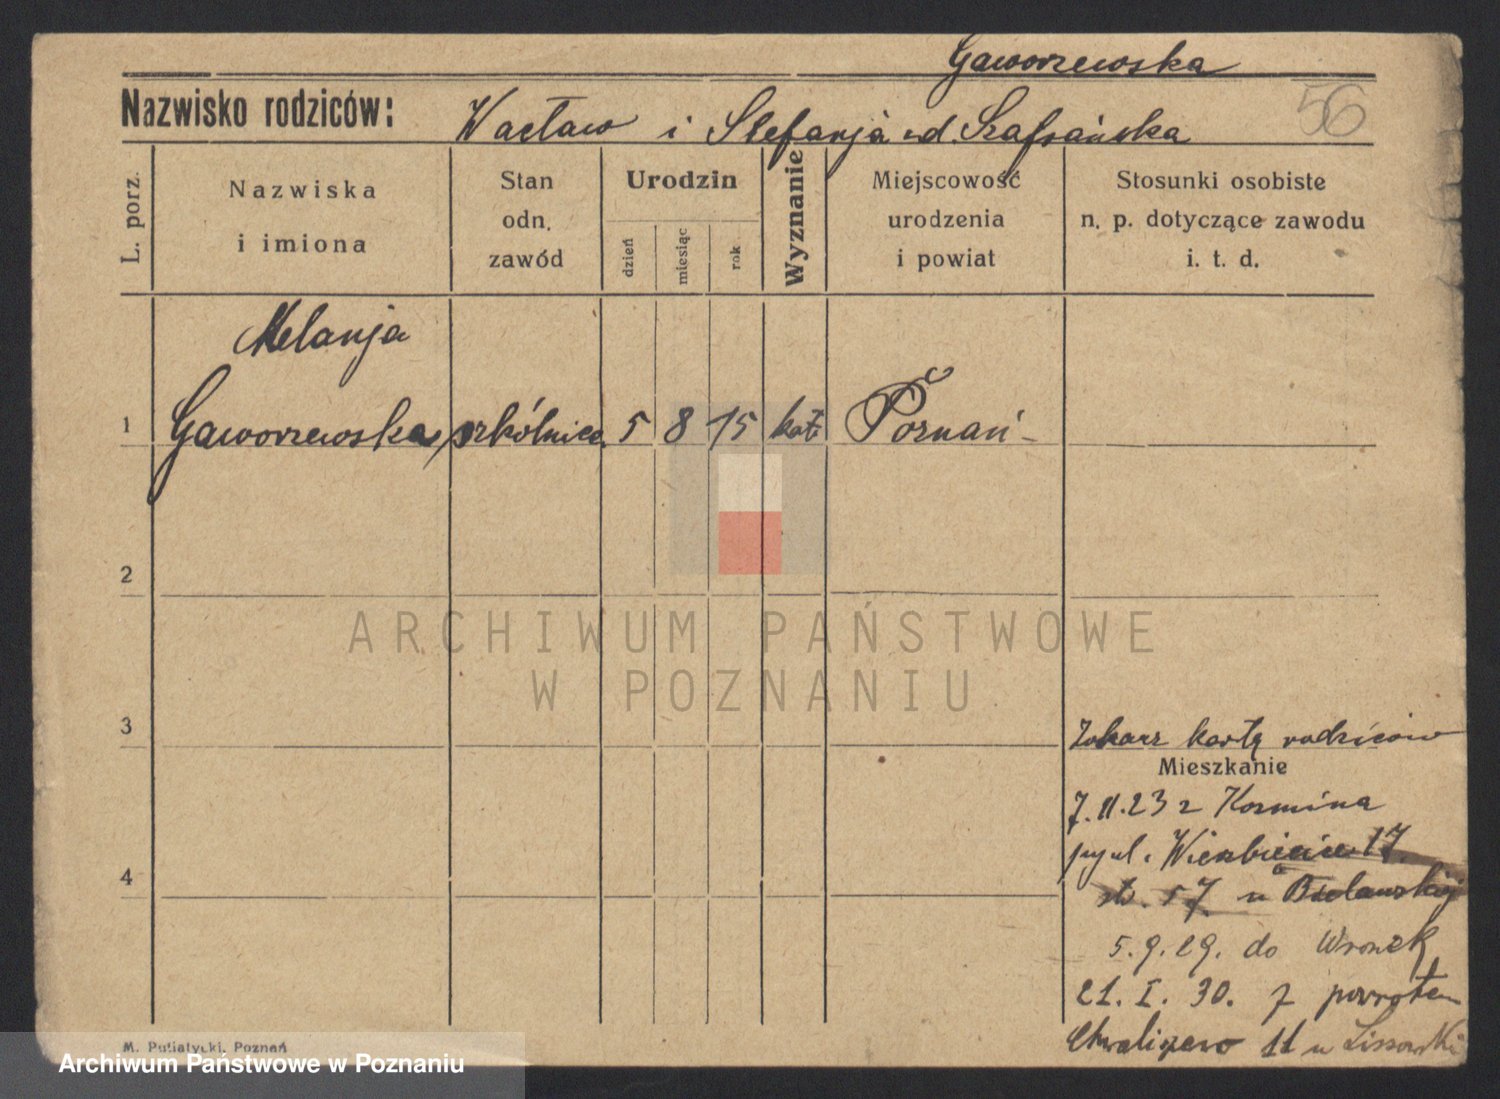 Gaworzewska
56
Nazwisko rodziców: Wacław i Stefanja ud. Szafrańska
L. porz.
Nazwiska
i imiona
Stan
odn.
zawód
Urodzin
dzień
miesiąc
rok
Wyznanie
Miejscowość
urodzenia
i powiat
Stosunki osobiste
n. p. dotyczące zawodu
i. t. d.
Melanja
1 Gaworzewska szkólnica 5 8 15 kat. Poznań
2
ARCHIWUM PAŃSTWOWE
W POZNANIU
3
kartę rodziców
Mieszkanie
7.11.23 z Kozmina
Wierzbięcice 17
4
57 u Bielawskiej
5.9.29. do Wronek
21. I. 30. z powrotem
Chwaliszewo 11 u Lissowski
M. Putiatycki, Poznań
Archiwum Państwowe w Poznaniu